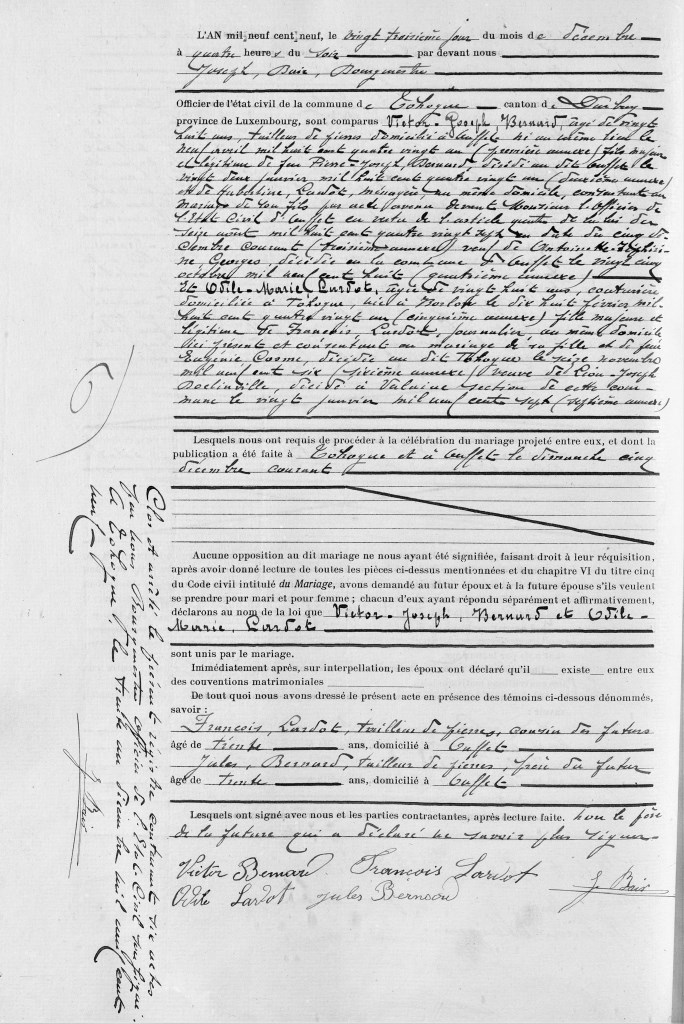 L'AN mil neuf cent neuf, le vingt troisième jour du mois de décembre
à quatre heures du soir par devant nous
Joseph, Bair, Bourgmestre
Officier de l'état civil de la commune de Tohogne canton de Durbuy
province de Luxembourg, sont comparus Victor-Joseph, Bernard âgé de vingt
huit ans, tailleur de pierres domicilié à Ouffet, né au même lieu le
neuf avril mil huit cent quatre vingt un (première annexe) fils majeur
et légitime de feu Pierre-Joseph, Bernard décédé au dit Ouffet le
vingt deux janvier mil huit cent quatre vingt un (deuxième annexe)
et de Hubertine, Lardot, ménagère au même domicile, consentante au
mariage de son fils par acte avenu devant Monsieur l'Officier de
l'Etat Civil d'Ouffet en vertu de l'article quatre de la loi du
seize août mil huit cent quatre vingt sept en date du cinq dé-
cembre courant (troisième annexe) veuf de Antoinette-Joséphi-
ne, Georges, décédée en la commune de Ouffet le vingt cinq
octobre mil neuf cent huit (quatrième annexe)
Et Odile-Marie, Lardot, âgée de vingt huit ans, couturière
domiciliée à Tohogne, née à Borlon le dix huit février mil
huit cent quatre vingt un (cinquième annexe) fille majeure et
légitime de François, Lardot, journalier, au même domicile
ici présent et consentant au mariage de sa fille et de feue
Eugénie Cosme, décédée au dit Tohogne le seize novembre
mil neuf cent six (sixième annexe) veuve de Léon-Joseph
décédé à section de cette com-
mune le vingt janvier mil neuf cent sept (septième annexe)
Lesquels nous ont requis de procéder à la célébration du mariage projeté entre eux, et dont la
publication a été faite à Tohogne et à Ouffet le dimanche cinq
décembre courant
Aucune opposition au dit mariage ne nous ayant été signifiée, faisant droit à leur réquisition,
après avoir donné lecture de toutes les pièces ci-dessus mentionnées et du chapitre VI du titre cinq
du Code civil intitulé du Mariage, avons demandé au futur époux et à la future épouse s'ils veulent
se prendre pour mari et pour femme ; chacun d'eux ayant répondu séparément et affirmativement,
déclarons au nom de la loi que Victor-Joseph, Bernard et Odile-
Marie, Lardot
sont unis par le mariage.
Immédiatement après, sur interpellation, les époux ont déclaré qu'il existe entre eux
des conventions matrimoniales
De tout quoi nous avons dressé le présent acte en présence des témoins ci-dessous dénommés,
savoir :
François, Lardot, tailleur de pierres, cousin des futurs
âgé de trente ans, domicilié à Ouffet
Jules, Bernard, tailleur de pierres, frère du futur
âgé de trente ans, domicilié à Ouffet
Lesquels ont signé avec nous et les parties contractantes, après lecture faite. hors le père
de la future qui a déclaré ne savoir plus signer
Victor Bernard François Lardot
Odile Lardot Jules Bernard J. Bair
6
Clos et arrêté le présent registre contenant six actes
par nous Bourgmestre officier de l'Etat-Civil soussigné.
A Tohogne, le trente un décembre mil neuf cent
neuf
J. Bair